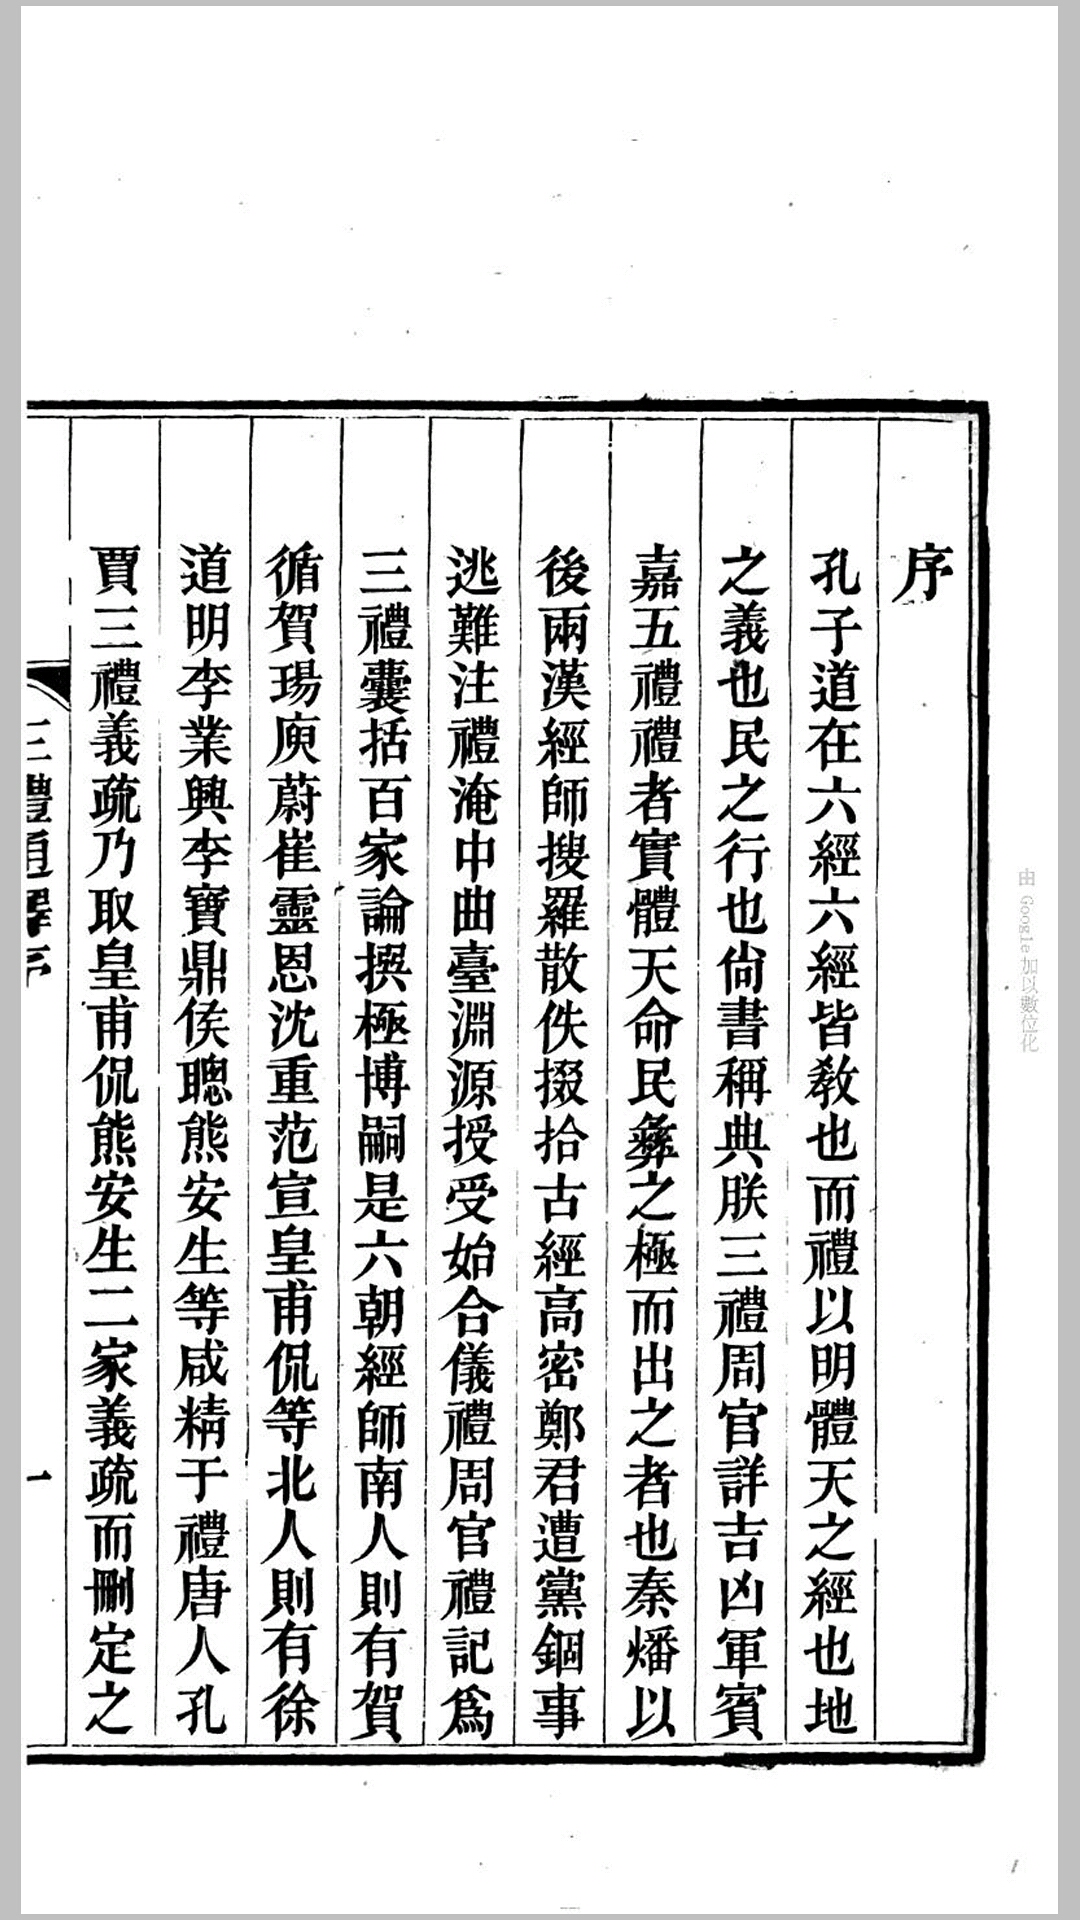 序
孔子道在六經六經皆敎也而禮以明體天之經也地
之義也民之行也尙書稱典朕三禮周官詳吉凶軍賓
嘉五禮禮者實體天命民彝之極而出之者也秦燔以
後兩漢經師搜羅散佚掇拾古經高密鄭君遭黨錮事
逃難注禮淹中曲臺淵源授受始合儀禮周官禮記爲
三禮囊括百家論撰極博嗣是六朝經師南人則有賀
循賀瑒庾蔚崔靈恩沈重范宣皇甫侃等北人則有徐
道明李業興李寶鼎侯聰熊安生等咸精于禮唐人孔
賈三禮義疏乃取皇甫侃熊安生二家義疏而刪定之
三禮通釋序
一
由 Google 加以數位化
1